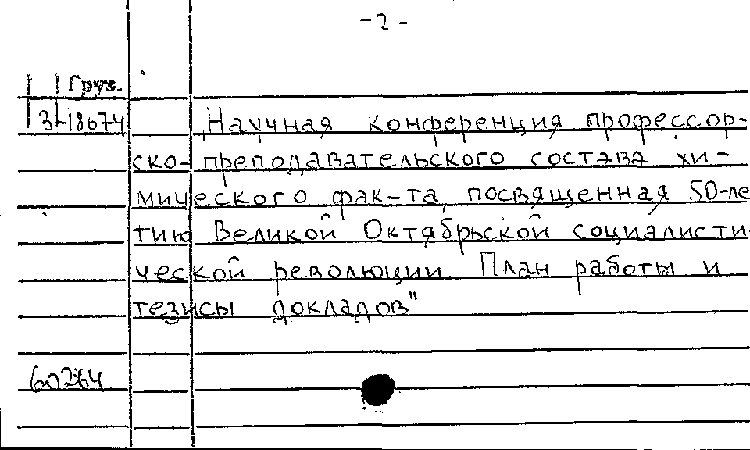 -2-
Груз.
3-18674 Научная конференция профессор-
ско-преподавательского состава хи-
мического фак-та, посвященная 50-ле
тию Великой Октябрьской социалисти-
ческой революции. План работы и
тезисы докладов"
60264